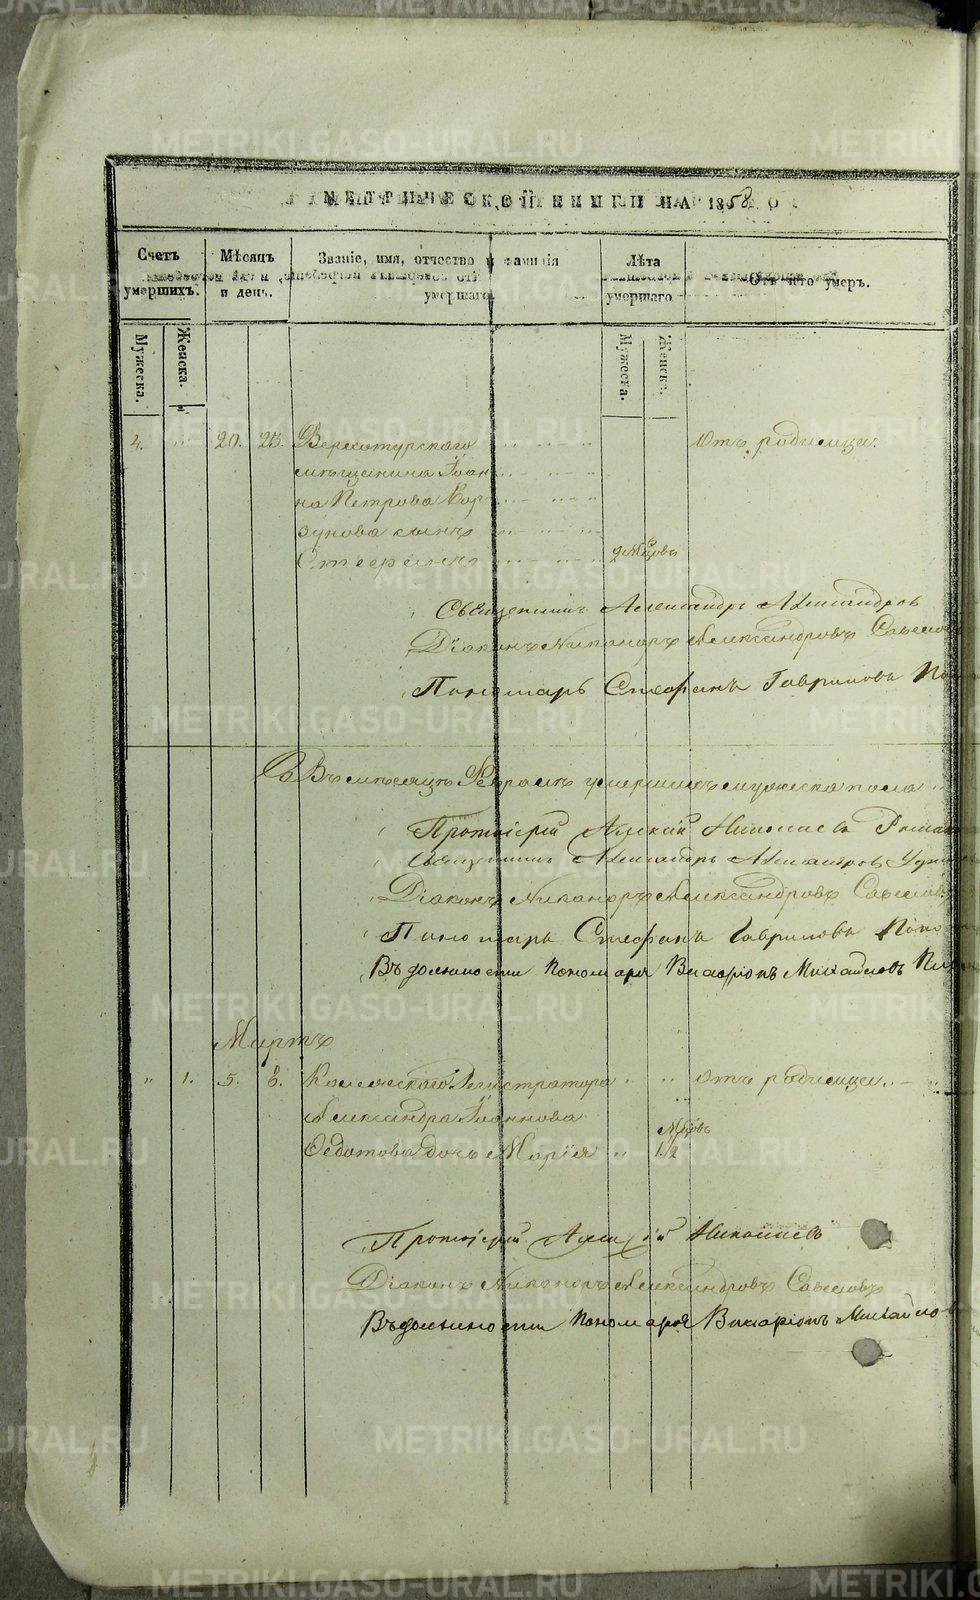 МЕТРИЧЕСКОЙ КНИГИ НА 1858 ГО
Счетъ умершихъ.
Мѣсяцъ и день.
Званіе, имя, отчество и фамилія умершаго
Лѣта умершаго
Отъ чего умеръ.
Мужеска.
Женска.
Мужеска.
Женска.
4. 20. 23. Верхотурскаго Отъ родимца.
мѣщанина Іоан
на Петрова Кор
зунова сынъ
9 Мцовъ
Священникъ Александръ Александров
Діаконъ Никаноръ Александровъ
Пономарь Стефанъ Гавриловъ
Въ мѣсяцѣ Февралѣ умершихъ мужеска пола
Протоіерей Николаевъ
Священникъ Александръ Александров
Діаконъ Никаноръ Александровъ
Пономарь Стефанъ Гавриловъ Попо
Въ должности Пономаря Виссаріонъ Михайловъ
Мартъ
" 1. 5. 8. Коллежскаго Регистратора Отъ родимца.
Александра Іоаннова
Федотова дочь Марія
Мцовъ
1 1/2
Протоіерей Николаевъ
Діаконъ Никаноръ Александровъ
Въ должности Пономаря Виссаріонъ Михайло
METRIKI.GASO-URAL.RU